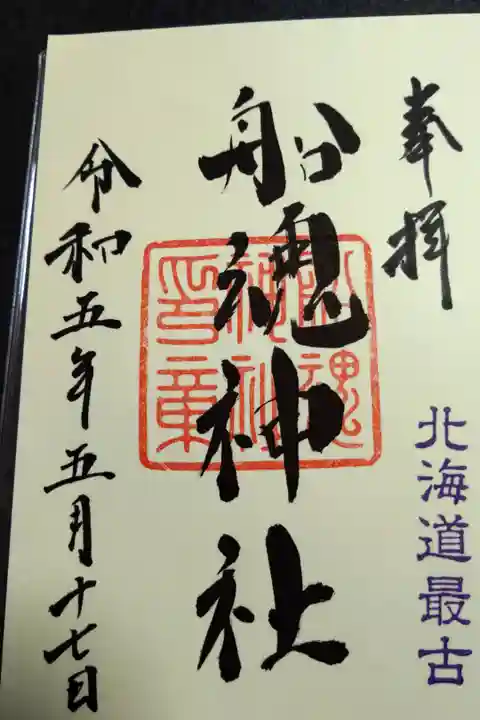 奉拝
北海道最古
船魂神社
船魂神社印章
令和五年五月十七日